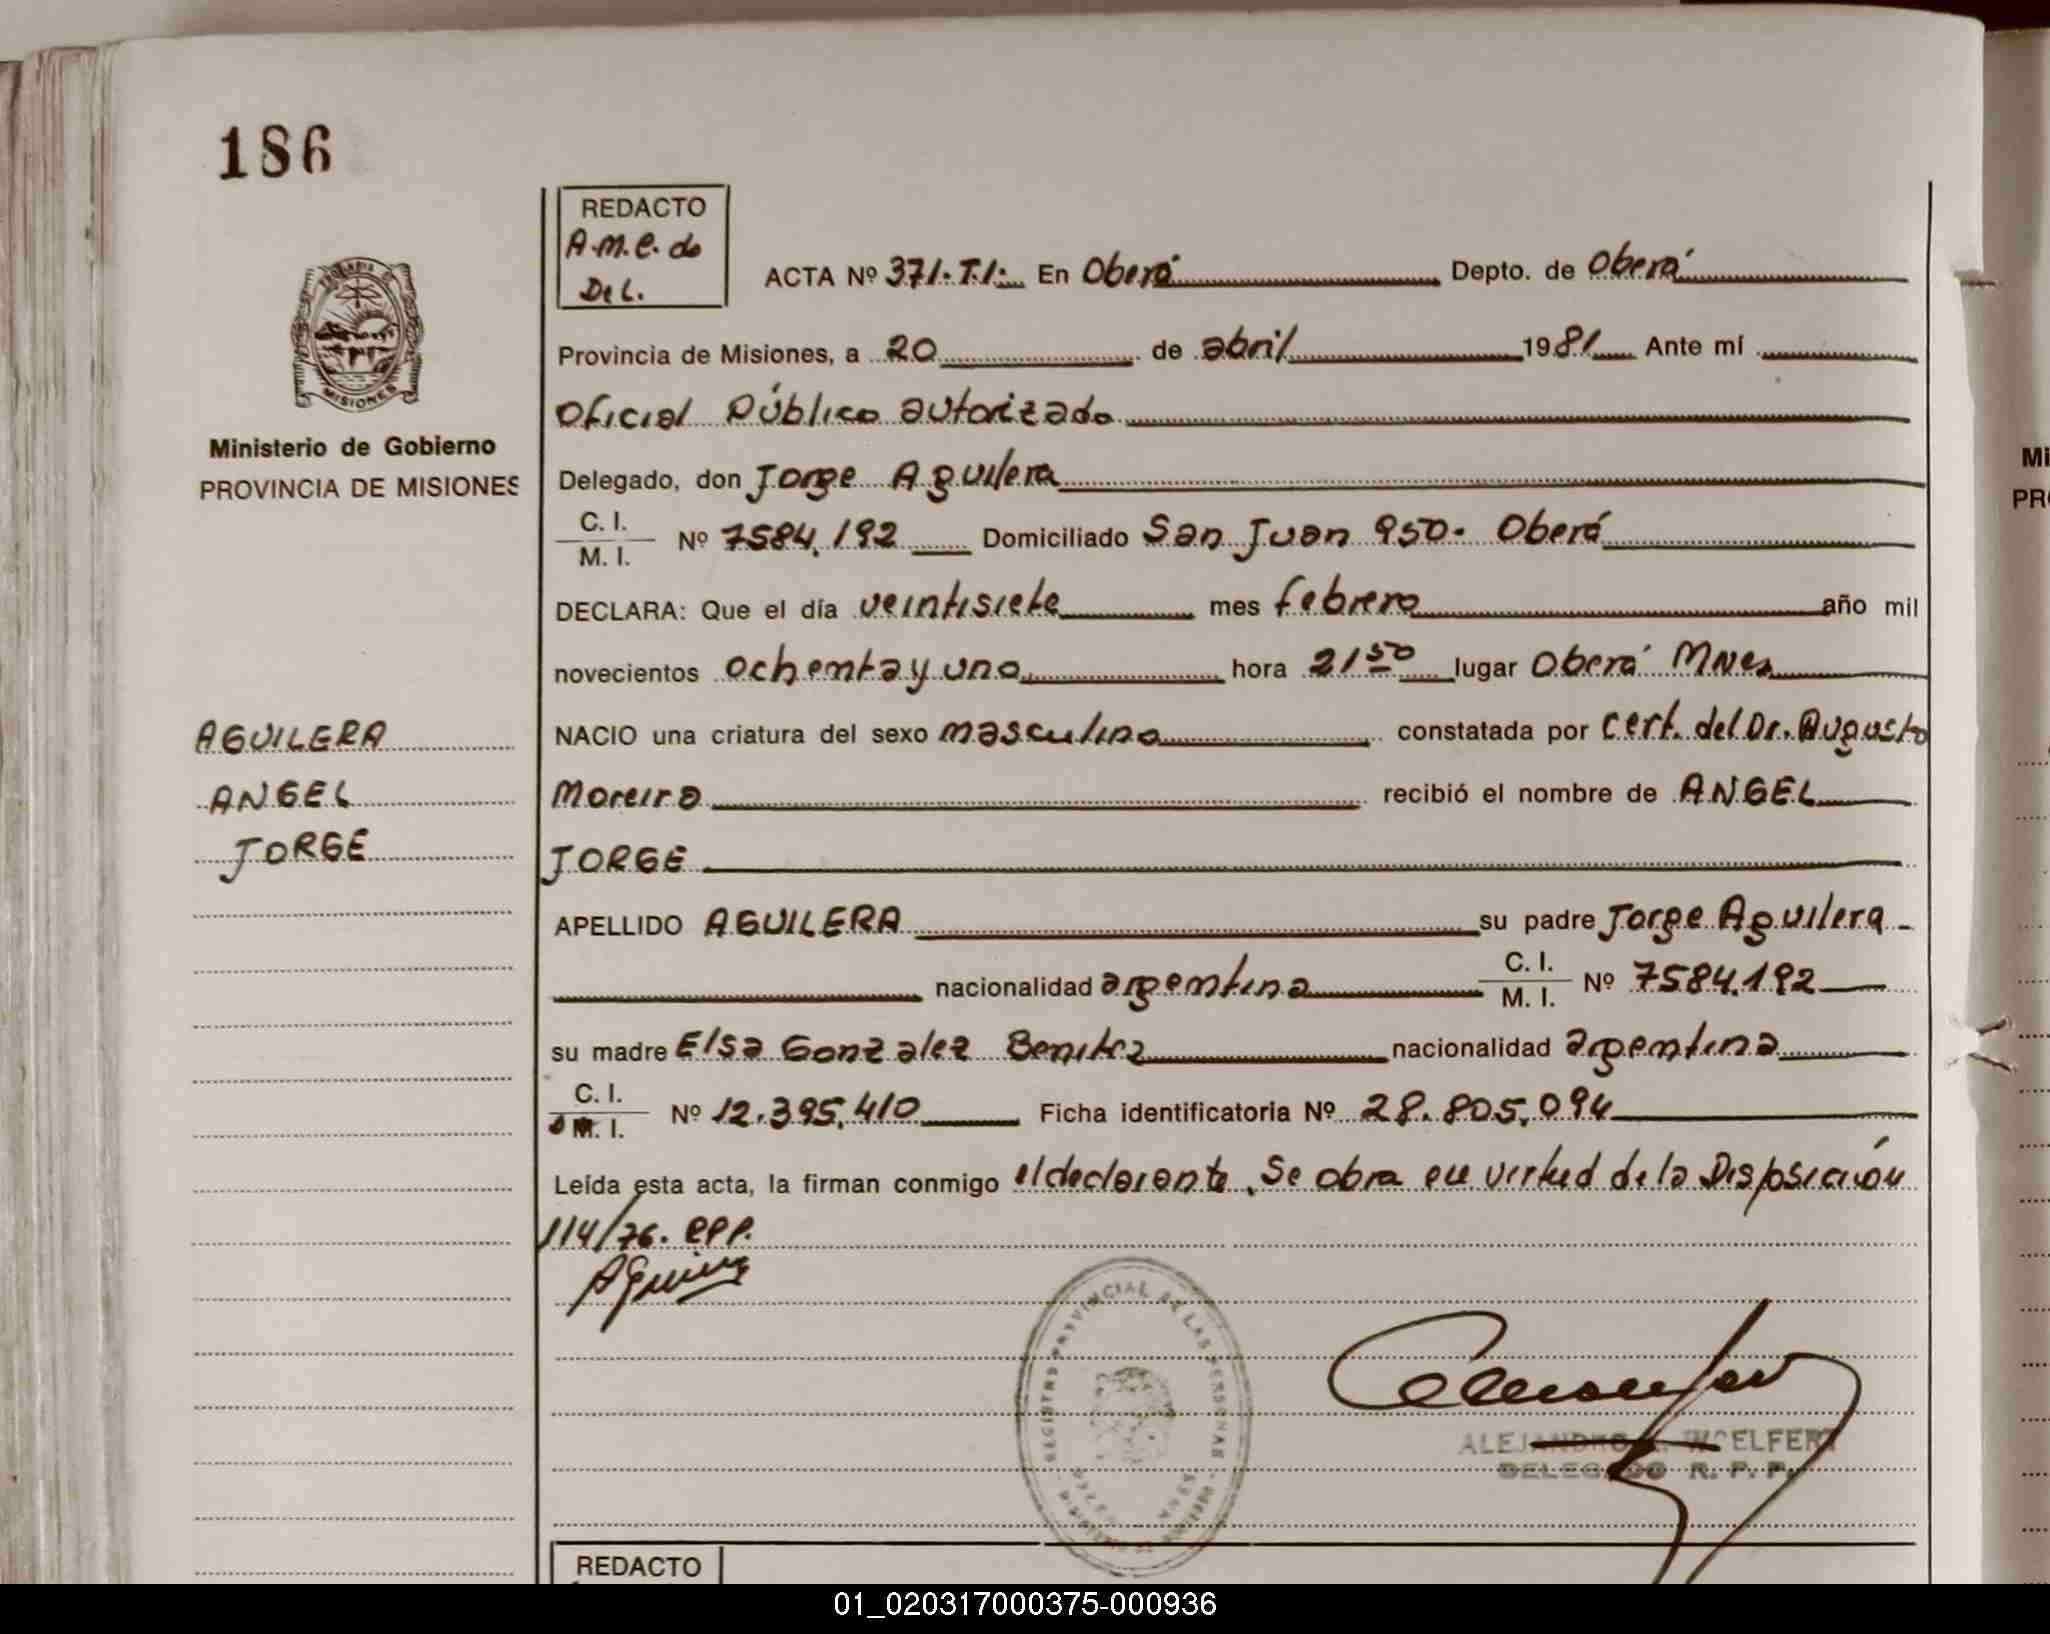 186
REDACTO
A.M.C. do
Del.
ACTA Nº 371.T.I. En Oberá Depto. de Oberá
Provincia de Misiones, a 20 de abril 1981 Ante mí
Oficial Público autorizado
Delegado, don Jorge Aguilera
C. I.
M. I. Nº 7584.192 Domiciliado San Juan 950. Oberá
DECLARA: Que el día veintisiete mes febrero año mil
novecientos ochenta y uno hora 21 50 lugar Oberá Mnes
NACIO una criatura del sexo masculino constatada por Cert. del Dr. Augusto
Moreira recibió el nombre de ANGEL
JORGE
APELLIDO AGUILERA su padre Jorge Aguilera -
nacionalidad argentina C. I.
M. I. Nº 7584.192
su madre Elsa Gonzalez Benitez nacionalidad argentina
C. I.
M. I. Nº 12.395.410 Ficha identificatoria Nº 28.805.094
Leída esta acta, la firman conmigo el declarante. Se obra en virtud de la Disposición
114/76. RPP.
PROVINCIA DE
MISIONES
Ministerio de Gobierno
PROVINCIA DE MISIONES
AGUILERA
ANGEL
JORGE
REGISTRO PROVINCIAL DE LAS PERSONAS
ALEJANDRO WOELFERT
DELEGADO R. P. P.
REDACTO
Mi
PRO
01_020317000375-000936